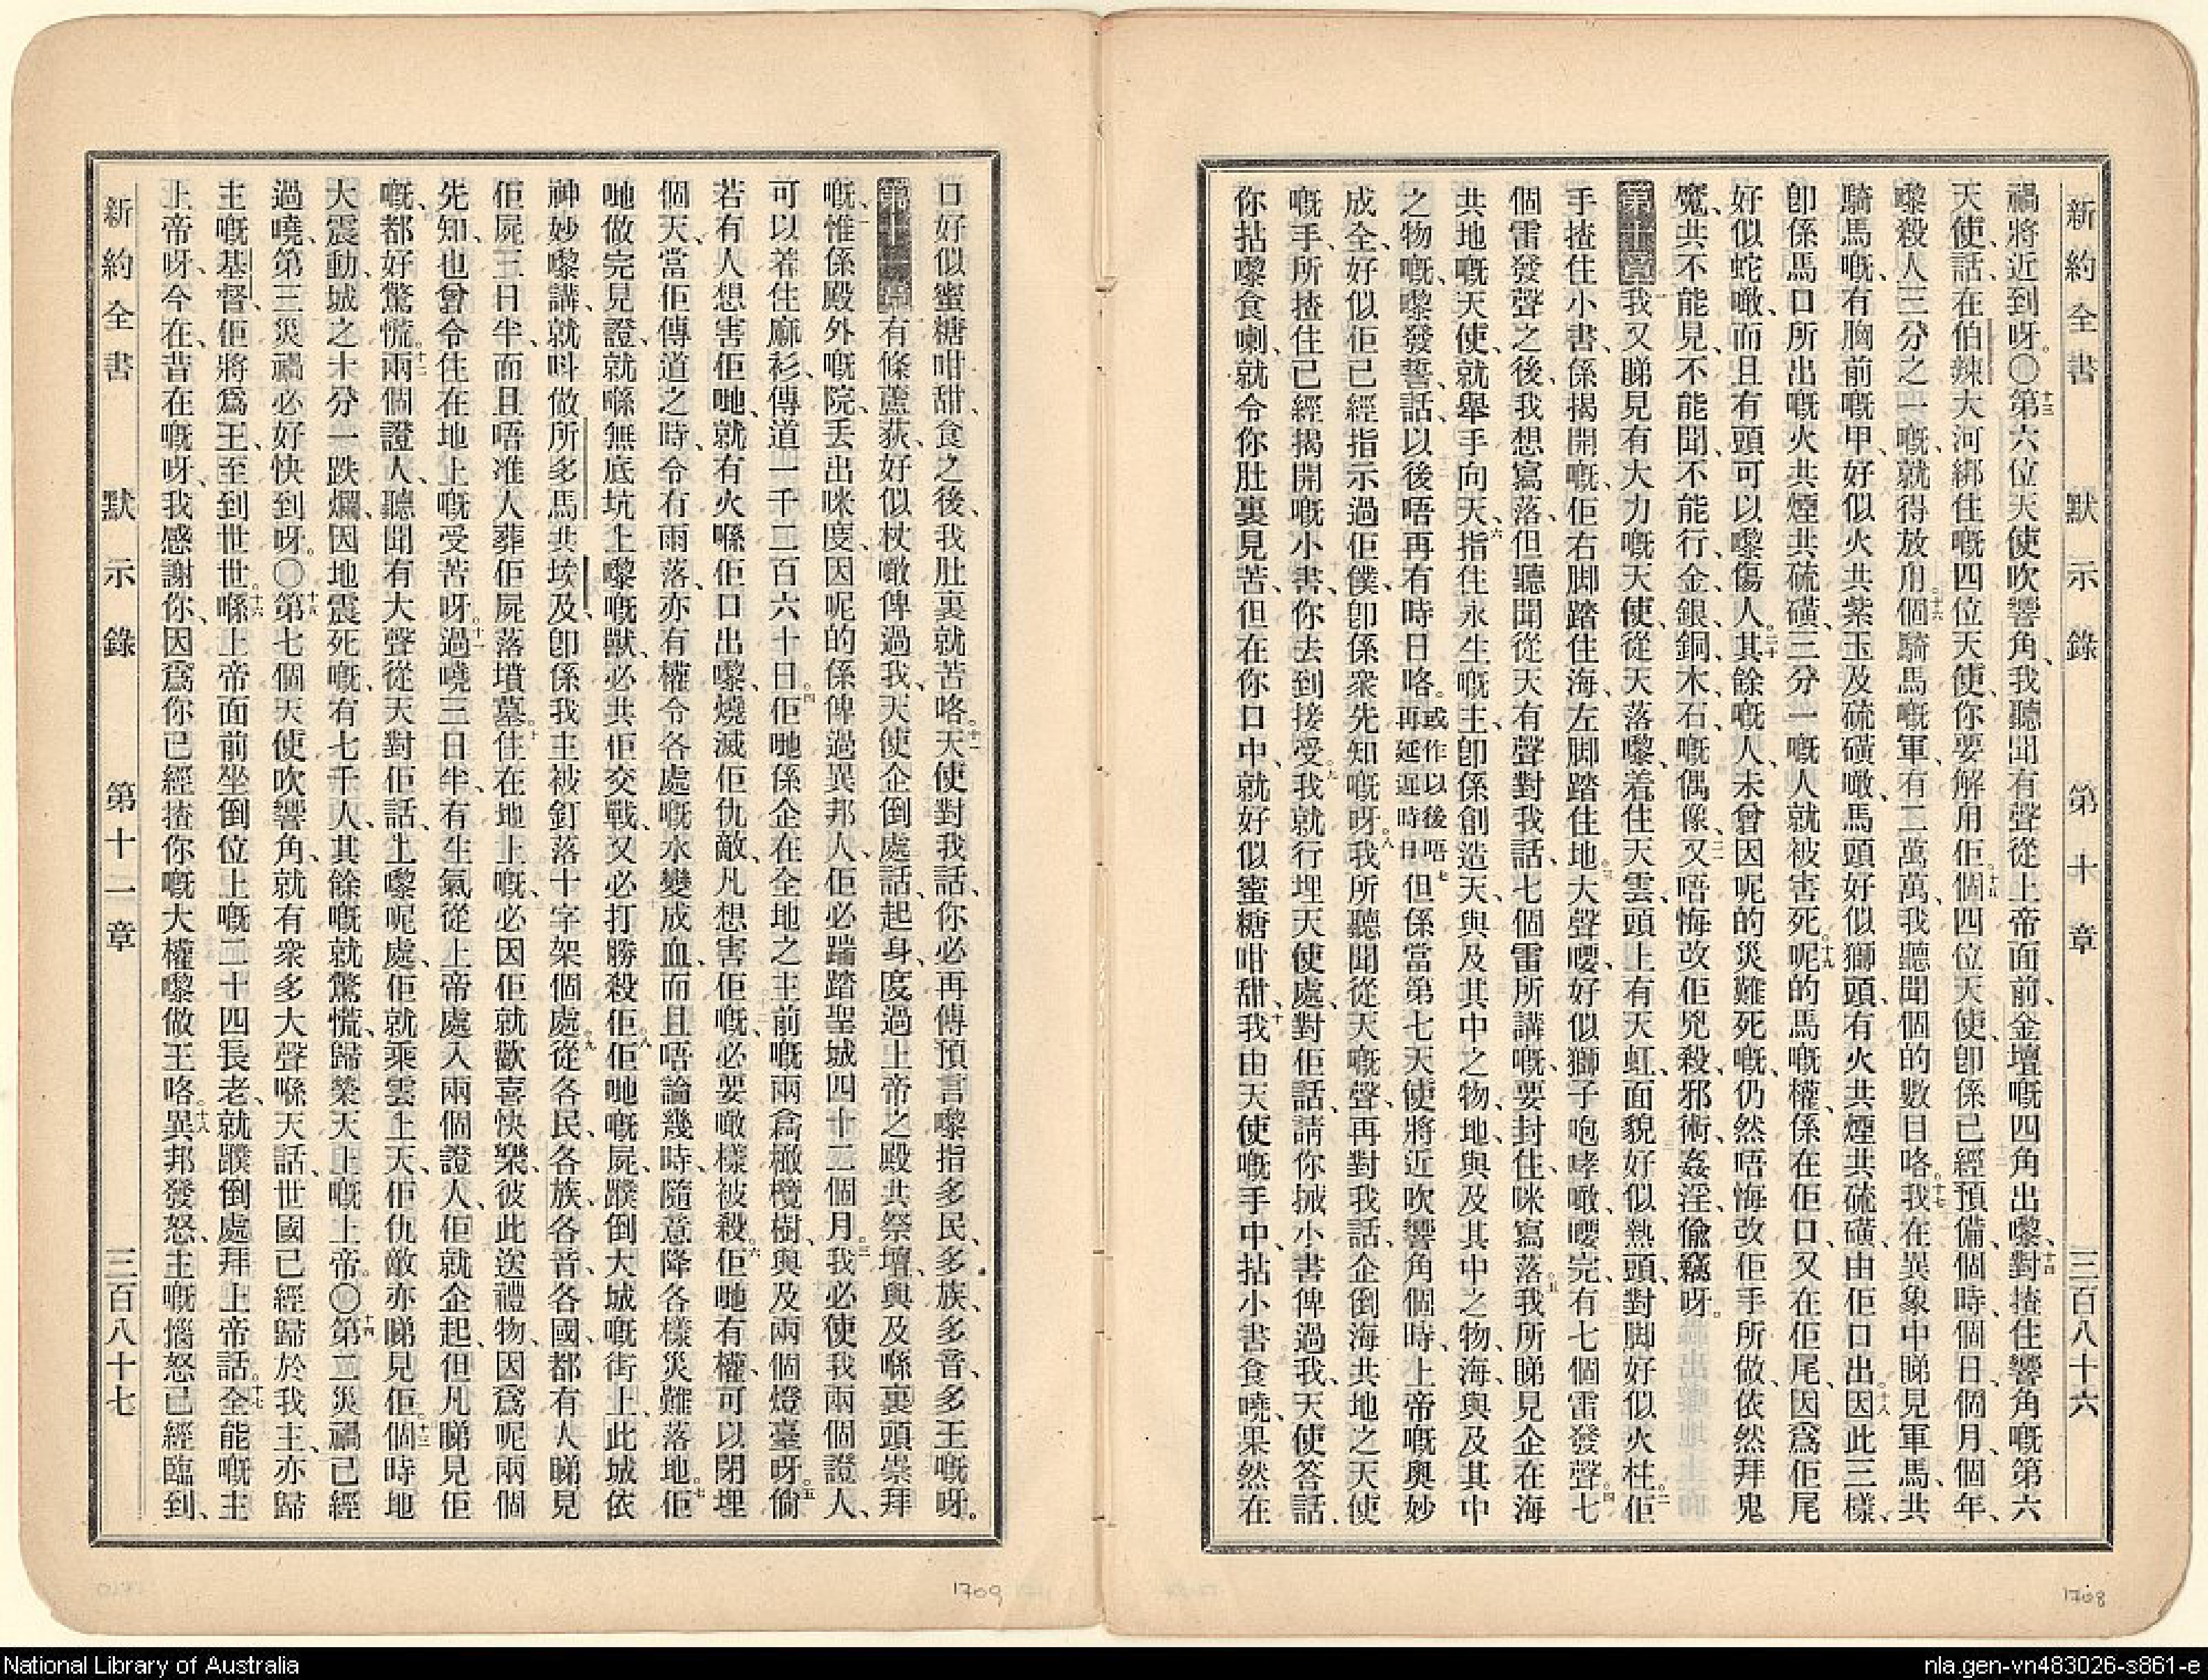 新約全書 默示錄 第十章 三百八十六
禍將近到呀。〇十三第六位天使吹響角、我聽聞有聲從上帝面前、金壇嘅四角出嚟、十四對揸住響角嘅第六
天使、話、在伯辣大河綁住嘅四位天使、你要解用佢。十五個四位天使、卽係已經預備個時、個日、個月、個年、
嚟殺人三分之一嘅、就得放用。十六個騎馬嘅軍、有二萬萬、我聽聞個的數目咯。十七我在異象中睇見軍馬、共
騎馬嘅、有胸前嘅甲、好似火共紫玉及硫磺噉、馬頭好似獅頭、有火共煙共硫磺、由佢口出。十八因此三樣、
卽係馬口所出嘅火共煙共硫磺、三分一嘅人就被害死。十九呢的馬嘅權、係在佢口、又在佢尾、因爲佢尾
好似蛇噉、而且有頭可以嚟傷人。二十其餘嘅人、未曾因呢的災難死嘅、仍然唔悔改佢手所做、依然拜鬼
魔、共不能見、不能聞、不能行、金、銀、銅、木、石、嘅偶像、二一又唔悔改佢兇殺、邪術、姦淫、偷竊呀。
第十章 一我又睇見有大力嘅天使、從天落嚟、着住天雲、頭上有天虹、面貌好似熱頭、對脚好似火柱。二佢
手揸住小書、係揭開嘅、佢右脚踏住海、左脚踏住地。三大聲嚶、好似獅子咆哮噉、嚶完、有七個雷發聲。四七
個雷發聲之後、我想寫落、但聽聞從天有聲對我話、七個雷所講嘅、要封住、咪寫落。五我所睇見企在海
共地嘅天使、就舉手向天、六指住永生嘅主、卽係創造天、與及其中之物、地、與及其中之物、海、與及其中
之物嘅、嚟發誓、話、以後唔再有時日咯。或作以後唔再延遲時日七但係當第七天使將近吹響角個時、上帝嘅奧妙
成全、好似佢已經指示過佢僕、卽係衆先知嘅呀。八我所聽聞從天嘅聲、再對我話、企倒海共地之天使
嘅手、所揸住已經揭開嘅小書、你去到接受。九我就行埋天使處、對佢話、請你搣小書俾過我、天使答話、
你拈嚟食喇、就令你肚裏見苦、但在你口中、就好似蜜糖咁甜、十我由天使嘅手中、拈小書食嘵、果然在
口好似蜜糖咁甜、食之後、我肚裏就苦咯。十一天使對我話、你必再傳預言嚟指多民、多族、多音、多王嘅呀。
第十一章 一有條蘆荻、好似杖噉俾過我、天使企倒處話、起身、度過上帝之殿、共祭壇、與及喺裏頭崇拜
嘅、二惟係殿外嘅院、丟出咪度、因呢的係俾過異邦人、佢必踹踏聖城四十二個月。三我必使我兩個證人、
可以着住麻衫、傳道一千二百六十日。四佢哋係企在全地之主前嘅兩樖橄欖樹、與及兩個燈臺呀。五倘
若有人想害佢哋、就有火喺佢口出嚟、燒滅佢仇敵、凡想害佢嘅、必要噉樣被殺。六佢哋有權、可以閉埋
個天、當佢傳道之時、令冇雨落、亦有權令各處嘅水變成血、而且唔論幾時、隨意降各樣災難落地。七佢
哋做完見證、就喺無底坑上嚟嘅獸、必共佢交戰、又必打勝殺佢。八佢哋嘅屍、蹼倒大城嘅街上、此城依
神妙嚟講、就呌做所多馬、共埃及、卽係我主被釘落十字架個處。九從各民、各族、各音、各國、都有人睇見
佢屍三日半、而且唔准人葬佢屍落墳墓。十住在地上嘅、必因佢就歡喜快樂、彼此送禮物、因爲呢兩個
先知、也曾令住在地上嘅受苦呀。十一過嘵三日半、有生氣從上帝處入兩個證人、佢就企起、但凡睇見佢
嘅、都好驚慌。十二兩個證人、聽聞有大聲從天對佢話、上嚟呢處、佢就乘雲上天、佢仇敵亦睇見佢。十三個時地
大震動、城之十分一跌爛、因地震死嘅、有七千人、其餘嘅就驚慌、歸榮天上嘅上帝。〇十四第二災禍已經
過嘵、第三災禍必好快到呀。〇十五第七個天使吹響角、就有衆多大聲喺天話、世國已經歸於我主、亦歸
主嘅基督、佢將爲王、至到世世。十六喺上帝面前坐倒位上嘅二十四長老、就蹼倒處拜上帝話、十七全能嘅主
上帝呀、今在、昔在嘅呀、我感謝你、因爲你已經揸你嘅大權嚟做王咯。十八異邦發怒、主嘅惱怒已經臨到、
新約全書 默示錄 第十一章 三百八十七
1709
1708
National Library of Australia
nla.gen-vn483026-s861-e